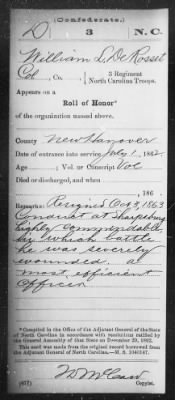 (Confederate.)
D 3 N.C.
William L. DeRosset
Col, Co. , 3 Regiment
North Carolina Troops.
Appears on a
Roll of Honor*
of the organization named above.
County New Hanover
Date of entrance into service July 1, 1862.
Age ; Vol. or Conscript Vol
Died or discharged, and when
, 186 .
Remarks: Resigned Oct 3, 1863
Conduct at Sharpsburg
highly commendable
in which battle
he was severely
wounded. a
most efficient
Officer
*Compiled in the Office of the Adjutant General of the State
of North Carolina in accordance with resolution ratified by
the General Assembly of that State on December 23, 1862.
This card was made from the original record borrowed from
the Adjutant General of North Carolina.—M. S.
(657)
Copyist.